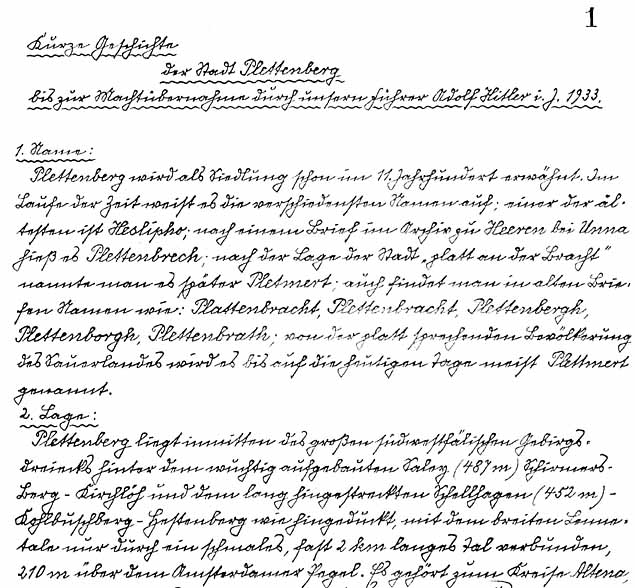 1
Kurze Geschichte
der Stadt Plettenberg
bis zur Machtübernahme durch unsern Führer Adolf Hitler i. J. 1933.
1. Name:
Plettenberg wird als Siedlung schon im 11. Jahrhundert erwähnt. Im
Laufe der Zeit weist es die verschiedensten Namen auf; einer der äl-
testen ist Heslipho; nach einem Brief im Archiv zu Heeren bei Unna
hieß es Plettenbrech; nach der Lage der Stadt „platt an der Bracht"
nannte man es später Pletmert; auch findet man in alten Brie-
fen Namen wie: Plattenbracht, Plettenbracht, Plettenbergh,
Plettenborgh, Plettenbrath; von der platt sprechenden Bevölkerung
des Sauerlandes wird es bis auf die heutigen Tage meist Plettmert
genannt.
2. Lage:
Plettenberg liegt inmitten des großen südwestfälischen Gebirgs-
dreiecks hinter dem wuchtig aufgebauten Saley (487 m) Schirmers-
Berg - Kirchlöh und dem lang hingestreckten Schellhagen (452 m) -
Kohlbuschberg - Hestenberg wie hingeduckt, mit dem breiten Lenne-
tale nur durch ein schmales, fast 2 km langes Tal verbunden,
210 m über dem Amsterdamer Pegel. Es gehört zum Kreise Altena